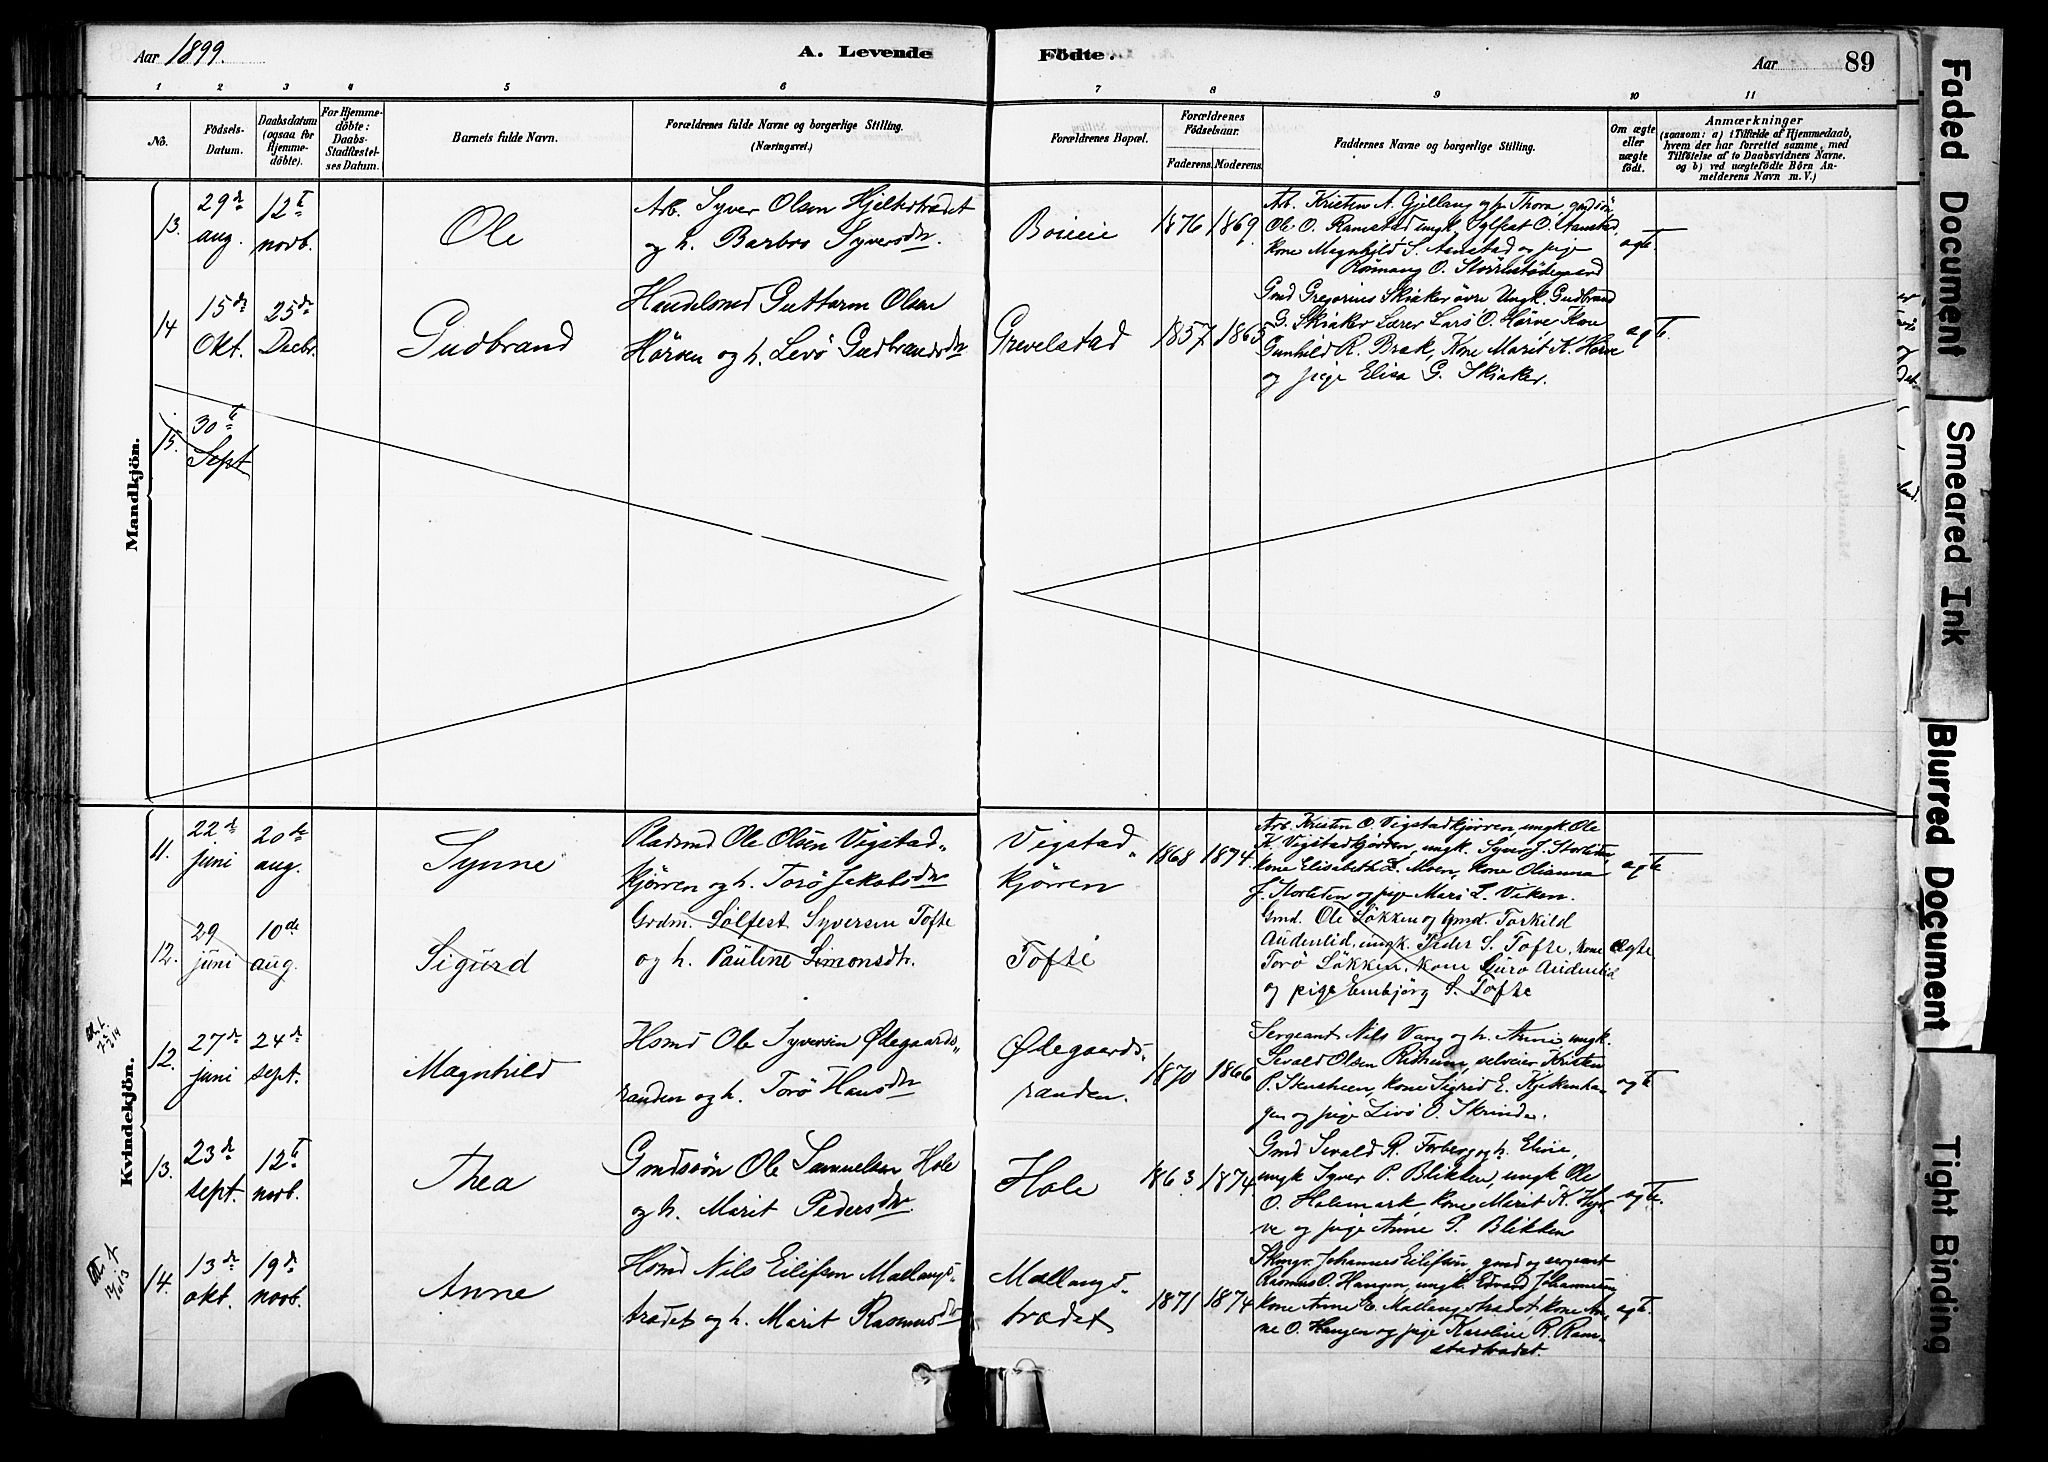 Aar 1899.
A. Levende Födte.
Aar 89
1 2 3 4 5 6 7 8 9 10 11
No.
Födsels-Datum.
Daabsdatum (ogsaa for Hjemmedöbte).
For Hjemmedöbte: Daabs-Stadfæstelses Datum.
Barnets fulde Navn.
Forældrenes fulde Navne og borgerlige Stilling. (Næringsvei.)
Forældrenes Bopæl.
Forældrenes Födselsaar.
Faderens. Moderens.
Faddernes Navne og borgerlige Stilling.
Om ægte eller uægte födt.
Anmærkninger
(saasom: a) i Tilfælde af Hjemmedaab, hvem der har forrettet samme, med Tilföielse af to Daabsvidners Navne. og b) ved uægtefödte Börn Anmelderens Navn m. V.)
Mandkjön.
13. 29de aug. 12te novb.
Ole
Arb. Syver Olsen Hjeltstrædet
og h. Barbro Syversdtr.
1876 1869.
Arb. Kristen A. Gjellang og h. Thora, gmdsön
Ole O. Ramstad ungk. Sylfest O. Aanstad,
kone Magnhild S. Aanstad og pige
Rönnaug O. Storrustödegaard
ægte.
14 15de Okt. 25de Decbr.
Gudbrand
Handelsmd Guttorm Olsen
Hörven og h. Levö Gudbrandsdtr
Grevelstad
1857 1865
Gmd Gregorius Skiaker övre Ungk. Gudbrand
G. Skiaker Lærer Lars O. Hörve Kone
Gunhild R. Bræk, Kone Marit K. Hörve
og pige Elisa G. Skiaker.
ægte.
15. 30te Sept
Kvindekjön.
11. 22de juni 20de aug.
Synne
Pladsmd Ole Olsen Vigstad„
kjørren og h. Torö Jakobsdtr
Vigstad„
kjørren
1868 1874.
Arb. Kristen O. Vigstadkjørren, ungk. Ole
K. Vigstadkjørren, ungk. Syver J. Storlien,
kone Elisabeth L. Moen, kone Olianna
J. Storlien og pige Mari L. Viken.
ægte
12. 29 juni 10de aug.
Sigurd
Grdm. Sølfest Syversen Tofte
og h. Pauline Simonsdt.
Tofte
Gmd. Ole Løkken og Gmd. Torkild
Audenlid, ungk. Peder S. Tofte, kone
Torö Løkken, kone Guro Audenlid
og pige Embjørg S. Tofte
Ægte
12. 27de juni 24de sept.
Magnhild
Hsmd Ole Syversen Ødegaards„
randen og h. Torö Hansdtr
Ødegaards„
randen.
1870 1866
Sergeant Nils Vang og h. Anne, ungk.
Sevald Olsen Ridheim, selveier Kristen
P. Stensheen, kone Sigrid E. Kjekenha„
gen og pige Livö O. Skrinde.
ægte
13. 23de sept. 12te novb.
Thea
Gmdssön Ole Samuelsen Hole
og h. Marit Pedersdtr.
Hole
1863 1874
Gmd Sevald R. Forberg og h. Eline,
ungk Syver P. Blikken, ungk Ole
O. Holemark kone Marit K. Hör„
ve og pige Anne P. Blikken
ægte.
14. 13de okt. 19de novb.
Anne
Hsmd Nils Eilifsen Mallangs„
trædet og h. Marit Rasmusdtr
Mallangs„
trædet
1871 1874
Skingr. Johannes Eilifsen, gmd og sergeant
Rasmus O. Haugen, ungk. Edvard Johannessen
kone Anne E. Mallangstrædet, kone An„
ne O. Haugen og pige Karoline R. Ram„
stadtrædet.
ægte.
Faded Document
Smeared Ink
Blurred Document
Tight Binding